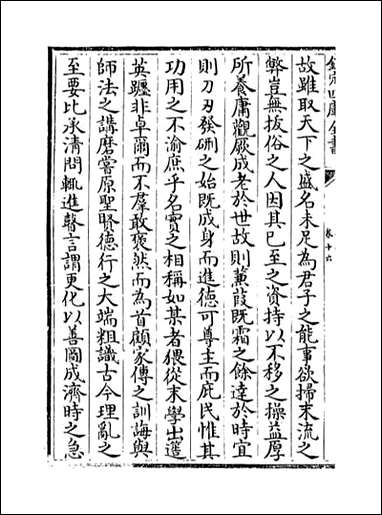 欽定四庫全書
卷十六
故雖取天下之盛名未足為君子之能事欲掃末流之
弊豈無拔俗之人因其已至之資持以不移之操益厚
所養庸觀厥成老於世故則蒹葭既霜之餘達於時宜
則刀刃發硎之始既成身而進德可尊主而庇民惟其
功用之不渝庶乎名實之相稱如某者猥從末學出遭
英躔非卓爾而不羣敢褎然而為首顧家傳之訓誨與
師法之講磨嘗原聖賢德行之大端粗識古今理亂之
至要比承清問輒進瞽言謂更化以善圖成濟時之急